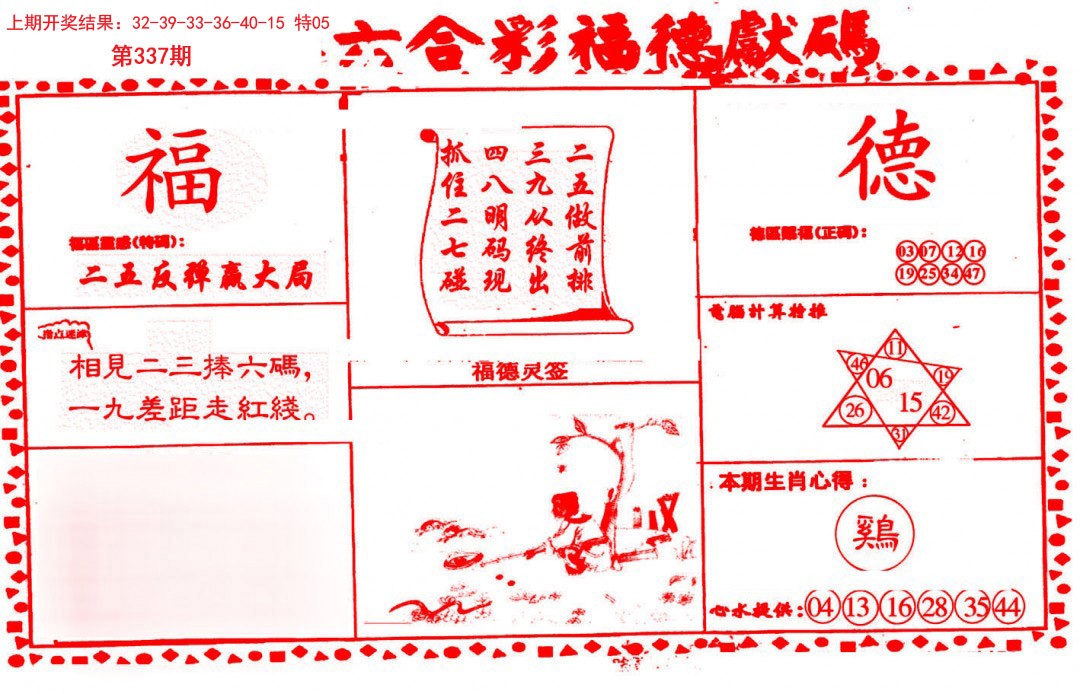 上期开奖结果：32-39-33-36-40-15 特05
第337期
六合彩福德獻碼
福
福區靈感(特碼)：
二五反弹赢大局
二五做前排
三九从终出
四八明码现
抓住二七碰
福德灵签
德
德區賜福(正碼)：
03 07 12 16
19 25 34 47
相見二三捧六碼，
一九差距走紅綫。
電腦計算特推
11
46 06 19
26 15 42
31
本期生肖心得：
鷄
心水提供：04 13 16 28 35 44